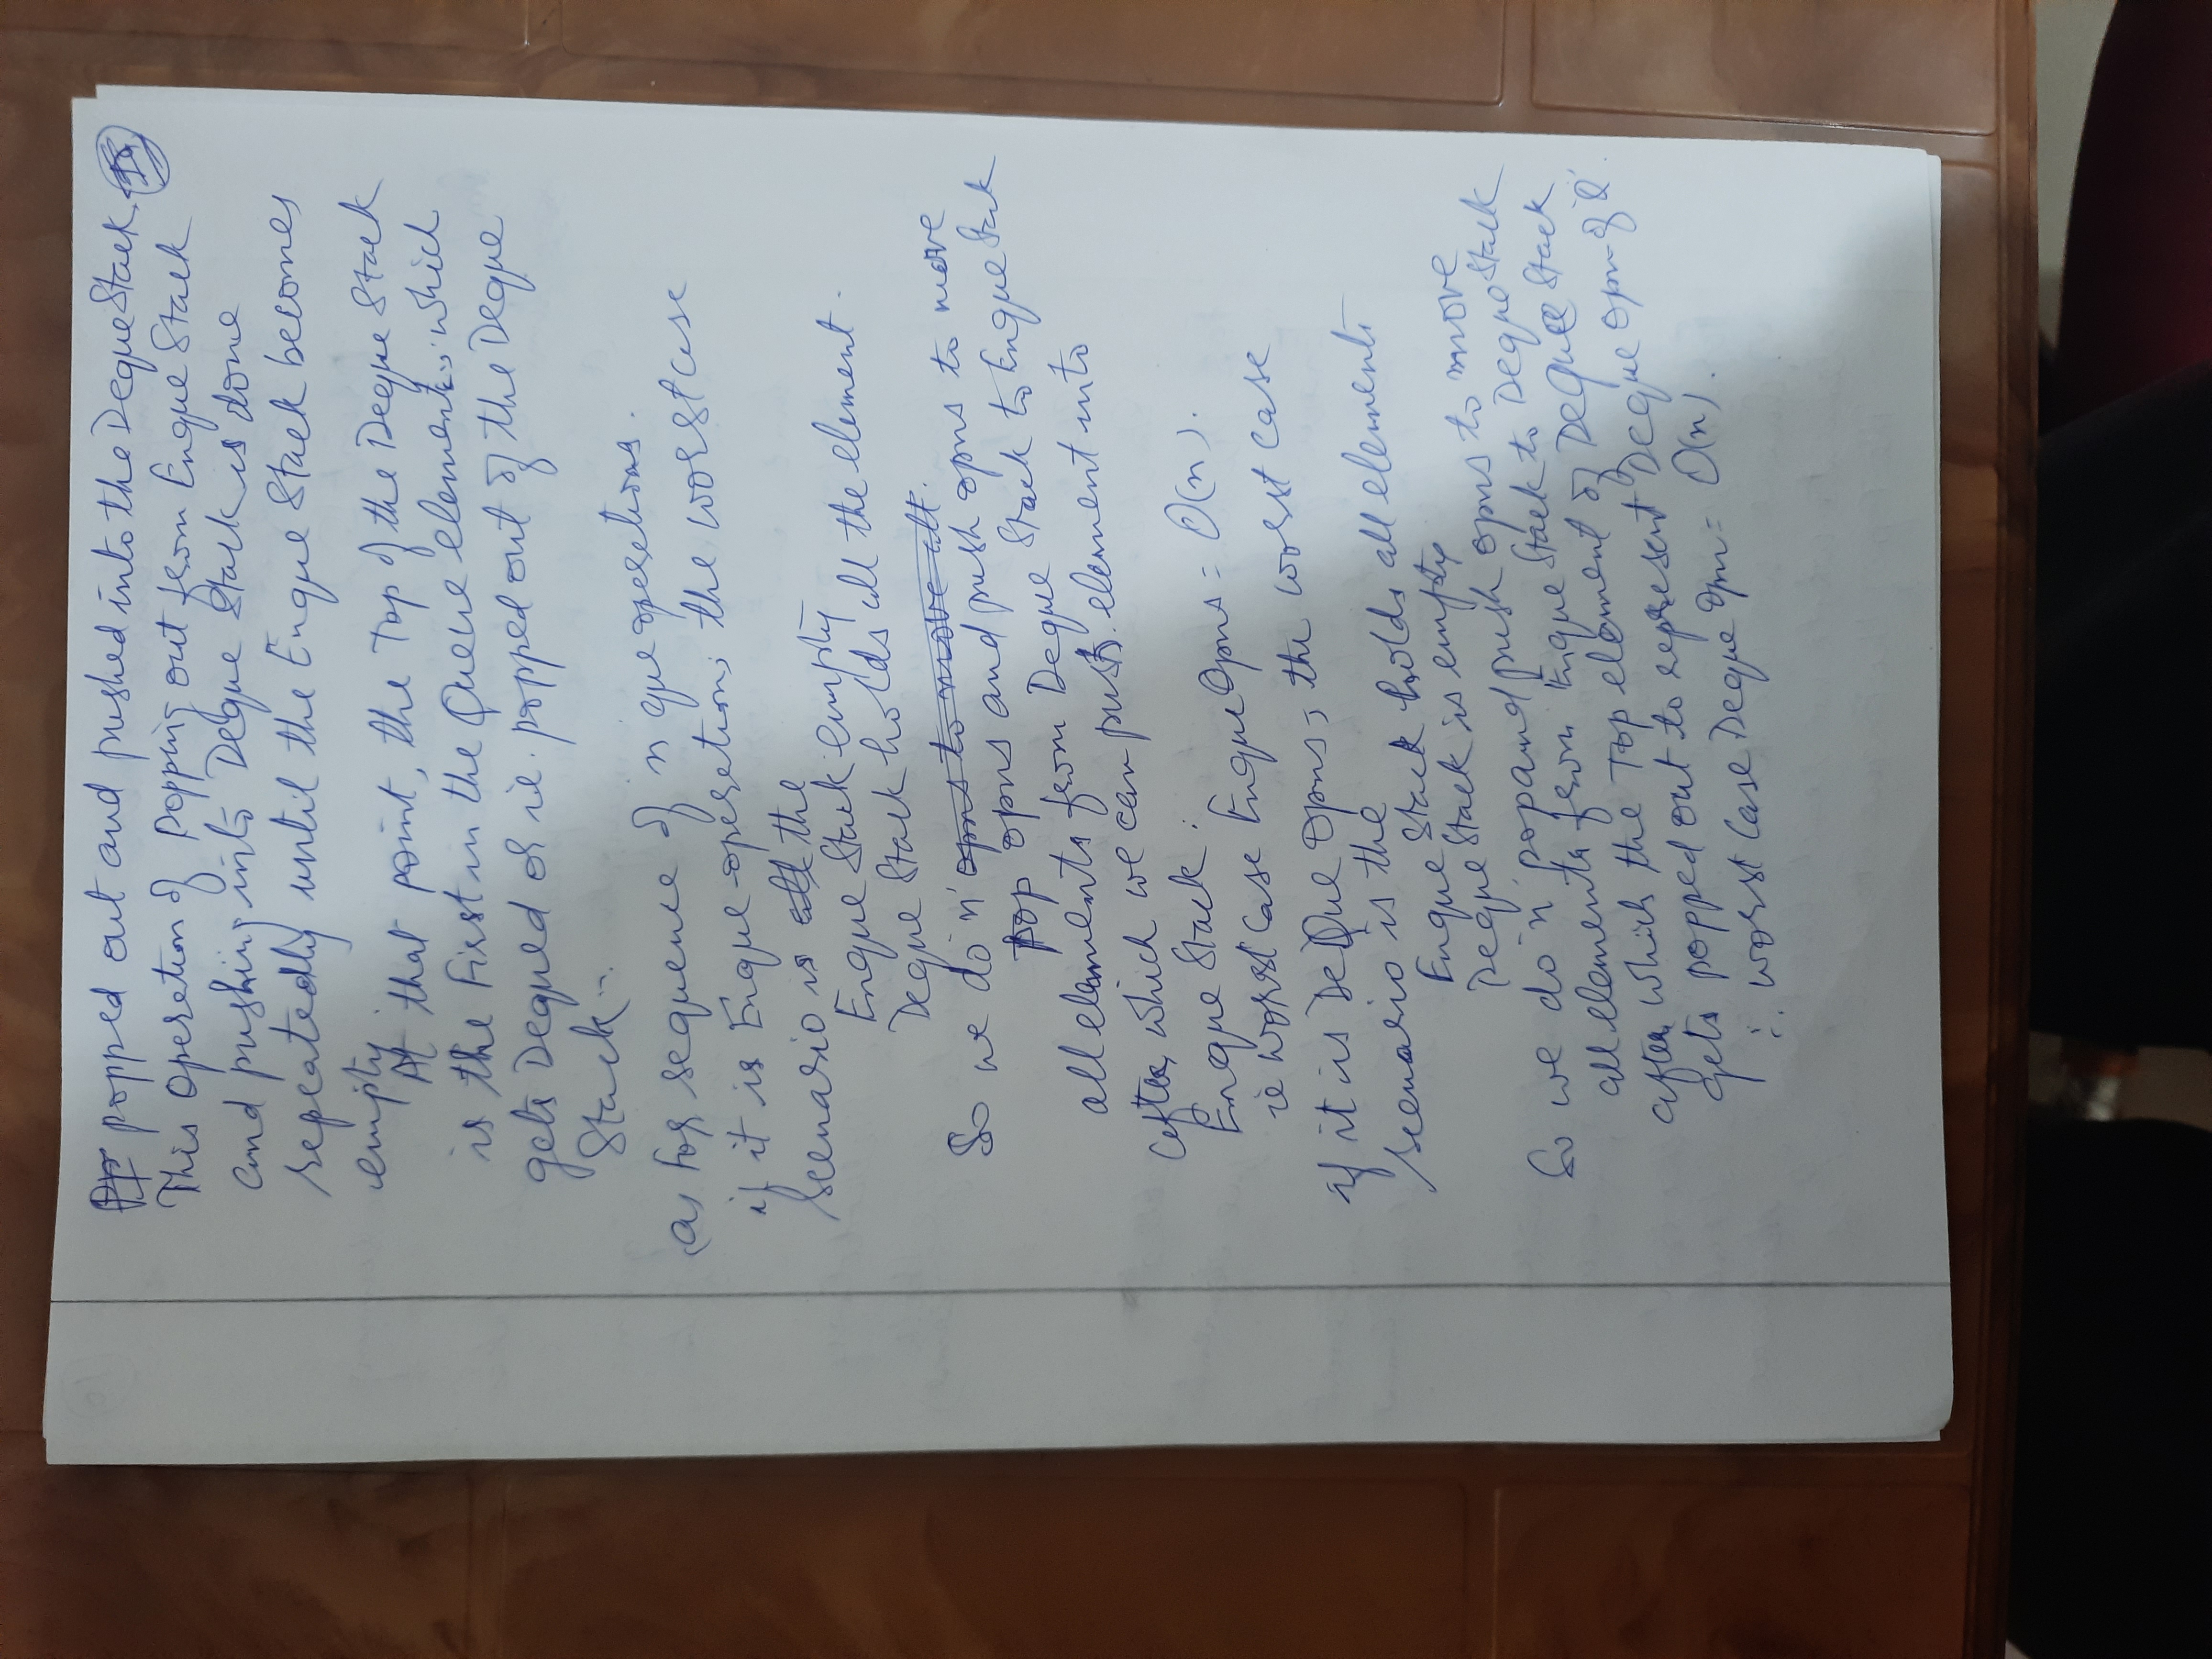 popped out and pushed into the Deque Stack.
This operation of Popping out from Enque Stack
and pushing into Deque Stack is done
repeatedly until the Enque Stack becomes
empty.
At that point, the Top of the Deque Stack
is the First in the Queue element, which
gets Dequed or ie. popped out of the Deque
Stack.
(a) For sequence of n que operations.
if it is Enque operation, the worst case
scenario is all the
Enque Stack empty
Deque Stack holds all the element.
So we do 'n' opns to move all.
Pop opns and push opns to move
all elements from Deque Stack to Enque Stack
after which we can push element into
Enque Stack.
ie worst case Enque Opns = O(n).
if it is DeQue opns, the worst case
scenario is the
Enque Stack holds all elements
Deque Stack is empty
So we do 'n' pop and push opns to move
all elements from Enque Stack to Deque Stack
after which the Top element of Deque Stack
gets popped out to represent Deque opn of 'Q'.
∴ worst case Deque opn = O(n).